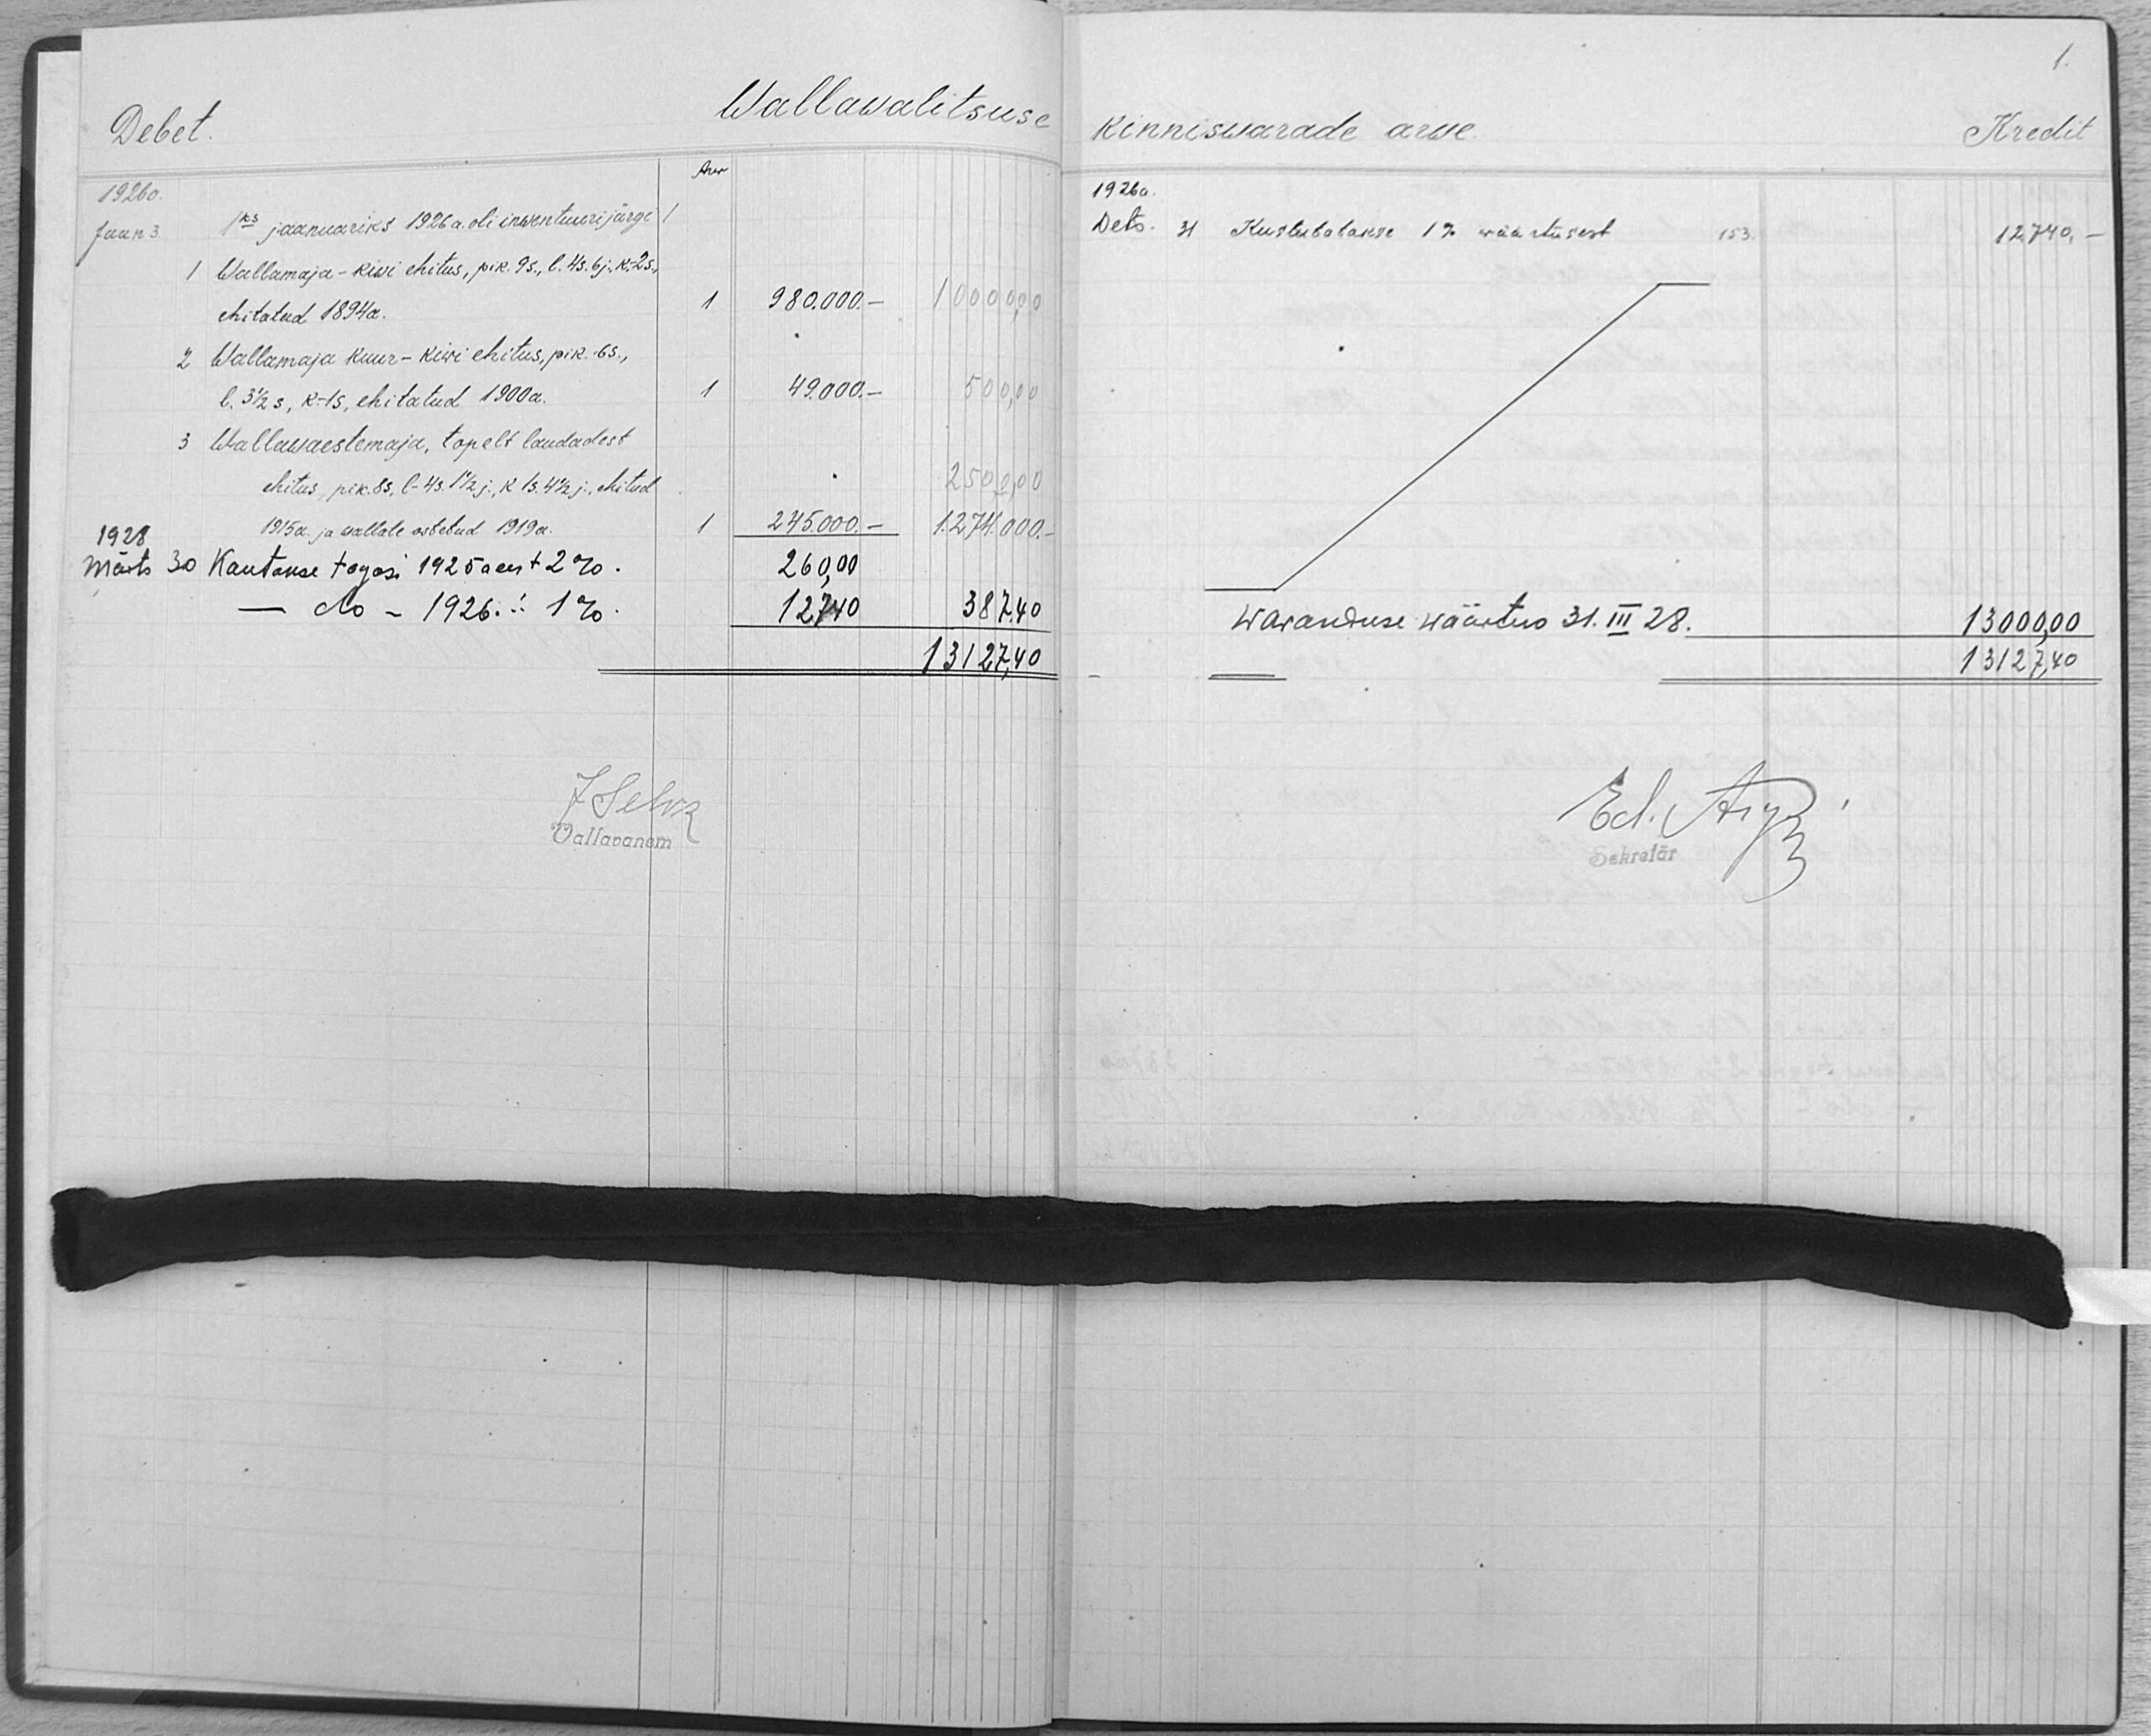 1.
Debet. Wallawalitsuse kinniswarade arwe. Kredit
Arw
1926a.
Jaan 3. 1ks jaanuariks 1926 a. oli inwentuuri järgi 1
1 Wallamaja - kiwi ehitus, pik. 9s., l. 4s. 6j., k-2s.,
ehitatud 1894a. 1 980.000.- 10000,00
2 Wallamaja kuur - kiwi ehitus, pik. 6s.,
l. 3½ s, k-1s, ehitatud 1900a. 1 49.000.- 500,00
3 Wallawaestemaja, topelt laudadest
ehitus, pik. 8s, l-4s. 1½ j., k 1s. 4½ j., ehitud 2500,00
1915a. ja wallale ostetud 1919a. 1 245.000.- 1.274.000.-
1928
Märts 30 Kantakse tagasi 1925 a eest 2% . 260,00
— do - 1926. 1% . 127,40 387,40
13127,40
J Selw
Vallavanem
1926a.
Dets. 31 Kustutatakse 1% wäärtusest 153. 12,740.-
Waranduse wäärtus 31. III 28. 13000,00
13127,40
Ed.
Sekretär